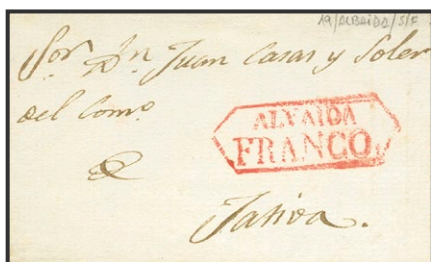 19/ALBAIDA/S/F
Sor. Dn. Juan Casas y Soler
del Como.
ALVAIDA
FRANCO.
Jativa.